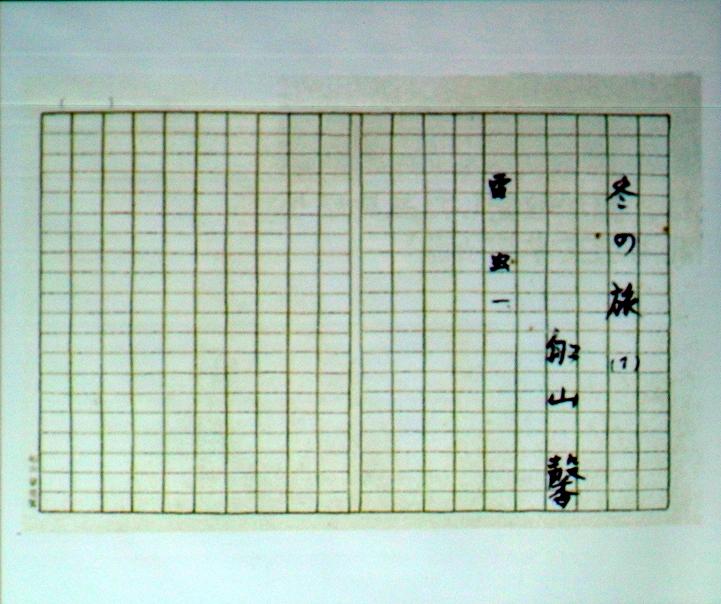 冬の旅(1)
船山馨
雪虫一